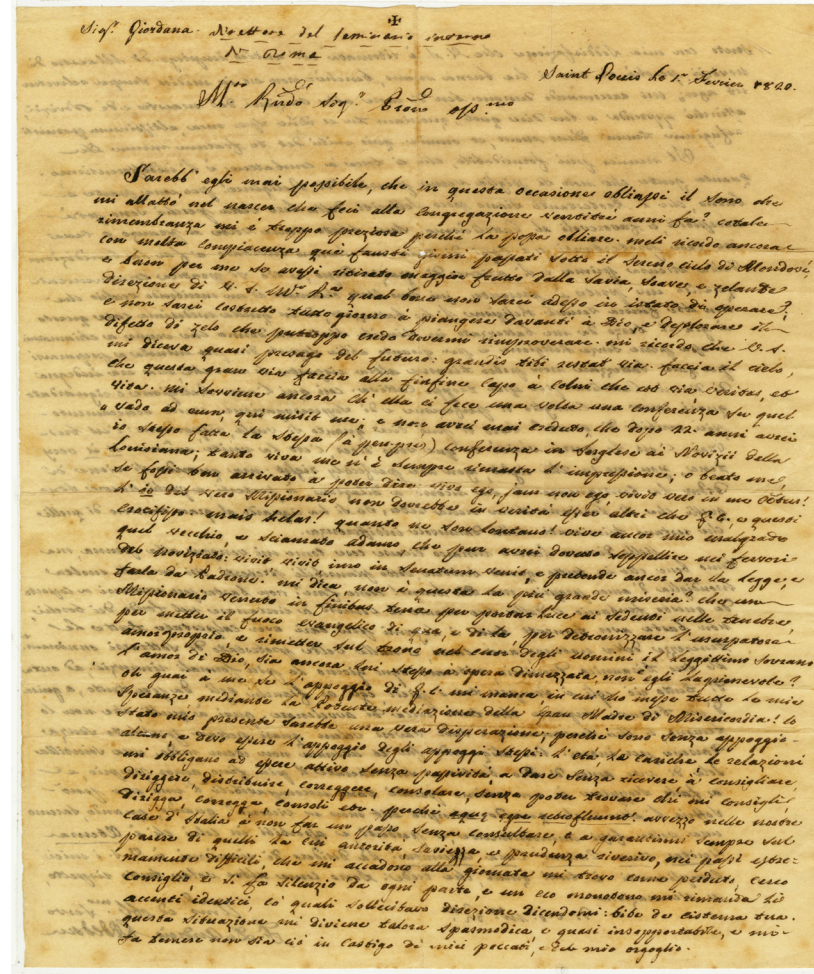 ✠
Sigr. Giordana Direttore del Seminario interno
Roma
Saint Louis le 1r Fevrier 1820.
Mto Rndo Sigr. Pron
Sarebb' egli mai possibile, che in questa occasione obliassi il dono che
nel nascer che feci alla Congregazione ventitei anni fa? cotale
rimembranza mi è troppo preziosa perchè la possa obliare. meli ricordo ancora
con molta compiacenza que' fausti giorni passati sotto il sereno cielo di Mondovi,
e buon per me se avessi ritirato maggior frutto dalla Savia, soave, e zelante
direzione di V. S. Mto Rda qual bene non sarei adesso in istato di operare?
e non sarei costretto tutto giorno à piangere davanti à Dio, e deplorare il
difetto di zelo che purtroppo credo dovermi rimproverare. mi ricordo che V. S.
mi diceva quasi presago del futuro: grandis tibi restat via. faccia il cielo,
che questa gran via faccia alla finfine capo à Colui che est via veritas, et
vita. mi sovviene ancora ch' ella ci fece una volta una conferenza su quel
vado ad eum, qui misit me; e non avrei mai creduto, che dopo 22 anni avrei
io stesso fatta la stessa (à peu près) conferenza in Inglese ai Novizii della
Louisiana; tanto viva me n' è sempre rimasta l' impressione; o beato me,
se fossi ben arrivato a poter dire vivo ego, jam non ego, vivit vero in me Xtus!
l' io del vero Missionario non dovrebbe in verità esser altri che G. C. e questi
crocifisso: mais helas! quanto ne son lontano! vive ancor mio malgrado
quel vecchio, e sciamato adamo, che pur avrei dovuto seppellire nei fervori
del noviziato: vivit vivit imo in Senatum venit, e pretende ancor dar la legge, e
farla da Padrone. mi dica, non è questa la più grande miseria? che un
Missionario venuto in finibus terrae per portar luce ai sedenti nelle tenebre,
per metter il fuoco evangelico di qua, e di là, per detronizzare l' usurpatore
amor proprio, e rimetter sul trono nel cuor degli uomini il leggittimo sovrano
l' amor di Dio, sia ancora lui stesso à opera dimezzata, non è egli lagrimevole?
oh guai à me se l' appoggio di G. C. mi manca, in cui ho messo tutte le mie
speranze mediante la potente mediazione della Gran Madre di Misericordia! lo
stato mio presente sarebbe una vera disperazione, perchè sono senza appoggio
alcuno, e devo essere l' appoggio degli appoggi stessi: l' età, le cariche le relazioni
mi obligano ad essere attivo senza passività, a dare senza ricevere à consigliare,
diriggere, distribuire, correggere, consolare, senza poter trovare chi mi consigli,
dirigga, corregga, consoli etc. perchè avvezzo nelle nostre
Case d' Italia à non far un passo senza consultare, e a garantirmi sempre sul
parere di quelli la cui autorità saviezza e prudenza riverivo, nei passi estre=
mamente difficili, che mi accadono alla giornata mi trovo come perduto, cerco
consiglio, e si fa silenzio da ogni parte, e un eco monotono mi rimanda li
accenti identici, co' quali sollecitavo direzione dicendomi: bibe de cisterna tua.
questa situazione mi diviene talora spasmodica e quasi insopportabile, e mi
fa temere non sia ciò in castigo di miei peccati, e del mio orgoglio.